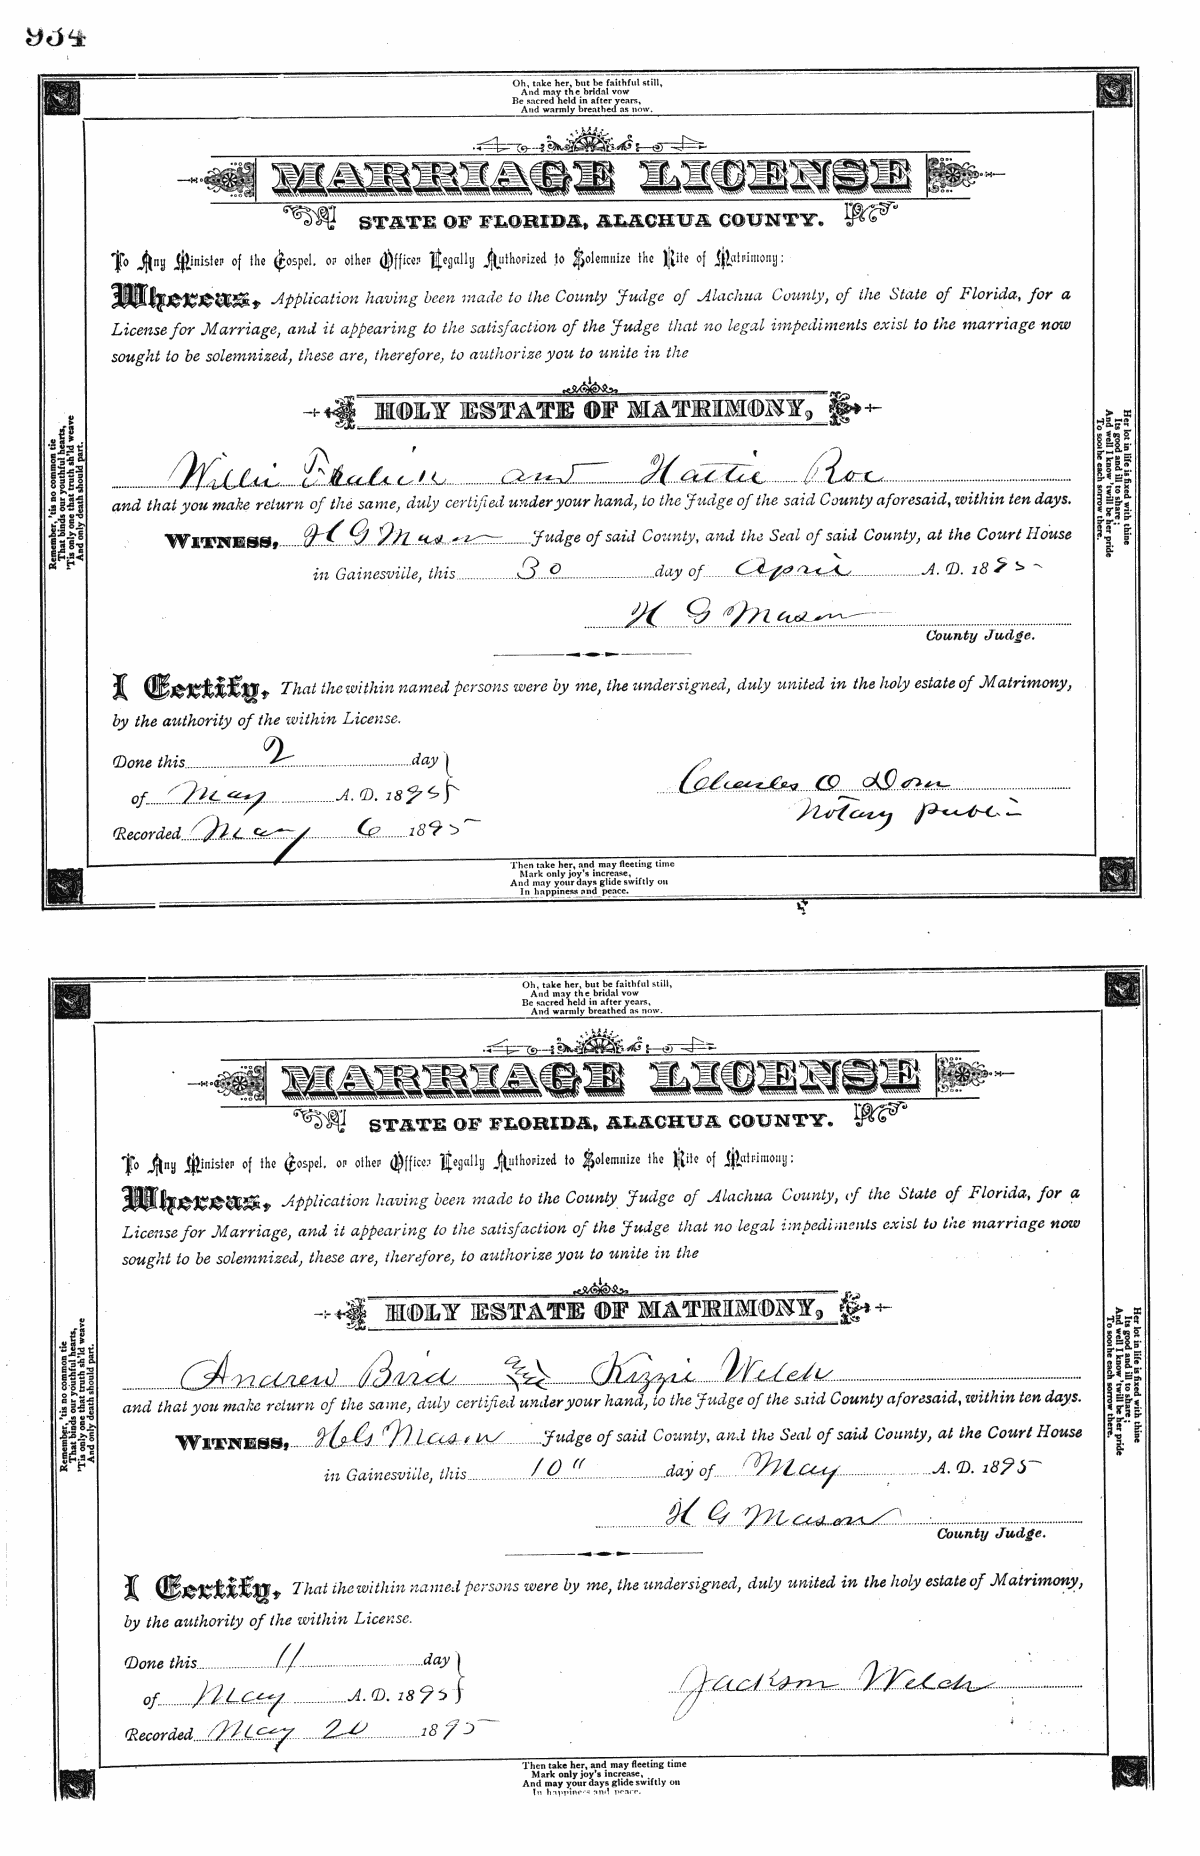 934
Oh, take her, but be faithful still,
And may the bridal vow
Be sacred held in after years,
And warmly breathed as now.
MARRIAGE LICENSE
STATE OF FLORIDA, ALACHUA COUNTY.
To Any Minister of the Gospel, or other Officer Legally Authorized to Solemnize the Rite of Matrimony:
Whereas, Application having been made to the County Judge of Alachua County, of the State of Florida, for a
License for Marriage, and it appearing to the satisfaction of the Judge that no legal impediments exist to the marriage now
sought to be solemnized, these are, therefore, to authorize you to unite in the
HOLY ESTATE OF MATRIMONY,
Willie and Hattie Roe
and that you make return of the same, duly certified under your hand, to the Judge of the said County aforesaid, within ten days.
WITNESS, H G Mason Judge of said County, and the Seal of said County, at the Court House
in Gainesville, this 30 day of April A. D. 1895
H G Mason
County Judge.
I Certify, That the within named persons were by me, the undersigned, duly united in the holy estate of Matrimony,
by the authority of the within License.
Done this 2 day
of May A. D. 1895
Charles O Dorn
Notary Public
Recorded May 6 1895
Remember, 'tis no common tie
That binds our youthful hearts,
'Tis only one that truth sh'ld weave
And only death should part.
Her lot in life is fixed with thine
Its good and ill to share;
And well I know 'twill be her pride
To soothe each sorrow there.
Then take her, and may fleeting time
Mark only joy's increase,
And may your days glide swiftly on
In happiness and peace.
Oh, take her, but be faithful still,
And may the bridal vow
Be sacred held in after years,
And warmly breathed as now.
MARRIAGE LICENSE
STATE OF FLORIDA, ALACHUA COUNTY.
To Any Minister of the Gospel, or other Officer Legally Authorized to Solemnize the Rite of Matrimony:
Whereas, Application having been made to the County Judge of Alachua County, of the State of Florida, for a
License for Marriage, and it appearing to the satisfaction of the Judge that no legal impediments exist to the marriage now
sought to be solemnized, these are, therefore, to authorize you to unite in the
HOLY ESTATE OF MATRIMONY,
Andrew Bird and Kizzie Welch
and that you make return of the same, duly certified under your hand, to the Judge of the said County aforesaid, within ten days.
WITNESS, H G Mason Judge of said County, and the Seal of said County, at the Court House
in Gainesville, this 10" day of May A. D. 1895
H G Mason
County Judge.
I Certify, That the within named persons were by me, the undersigned, duly united in the holy estate of Matrimony,
by the authority of the within License.
Done this 11 day
of May A. D. 1895
Jackson Welch
Recorded May 20 1895
Remember, 'tis no common tie
That binds our youthful hearts,
'Tis only one that truth sh'ld weave
And only death should part.
Her lot in life is fixed with thine
Its good and ill to share;
And well I know 'twill be her pride
To soothe each sorrow there.
Then take her, and may fleeting time
Mark only joy's increase,
And may your days glide swiftly on
In happiness and peace.